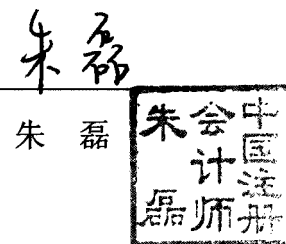 朱磊
朱磊
中国注册
会计师
朱磊